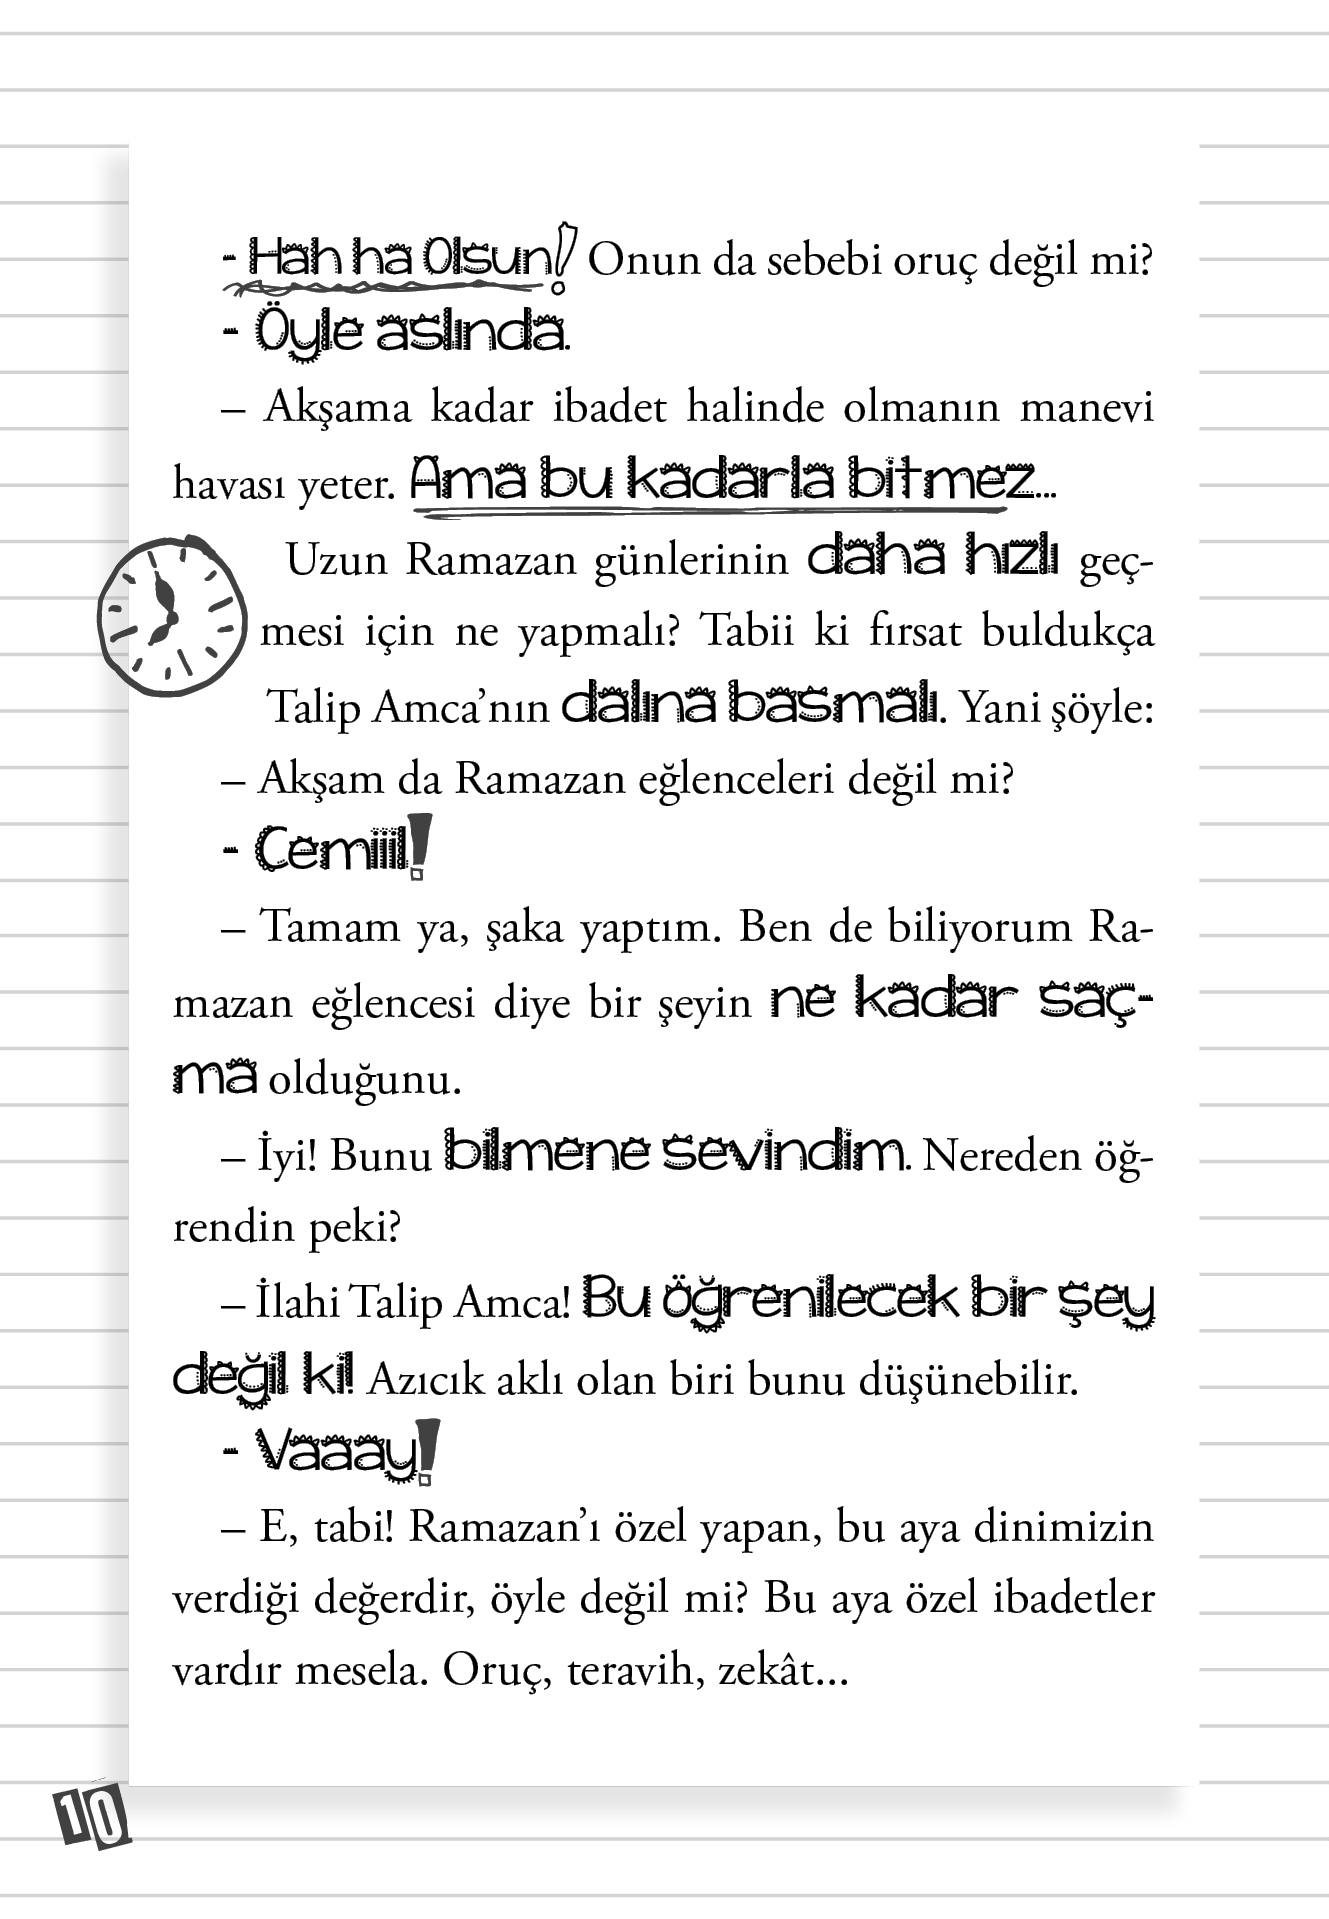 - Hah ha Olsun! Onun da sebebi oruç değil mi?
- Öyle aslında.
– Akşama kadar ibadet halinde olmanın manevi
havası yeter. Ama bu kadarla bitmez...
Uzun Ramazan günlerinin daha hızlı geç-
mesi için ne yapmalı? Tabii ki fırsat buldukça
Talip Amca’nın dalına basmalı. Yani şöyle:
– Akşam da Ramazan eğlenceleri değil mi?
- Cemiiil!
– Tamam ya, şaka yaptım. Ben de biliyorum Ra-
mazan eğlencesi diye bir şeyin ne kadar saç-
ma olduğunu.
– İyi! Bunu bilmene sevindim. Nereden öğ-
rendin peki?
– İlahi Talip Amca! Bu öğrenilecek bir şey
değil ki! Azıcık aklı olan biri bunu düşünebilir.
- Vaaay!
– E, tabi! Ramazan’ı özel yapan, bu aya dinimizin
verdiği değerdir, öyle değil mi? Bu aya özel ibadetler
vardır mesela. Oruç, teravih, zekât...
10